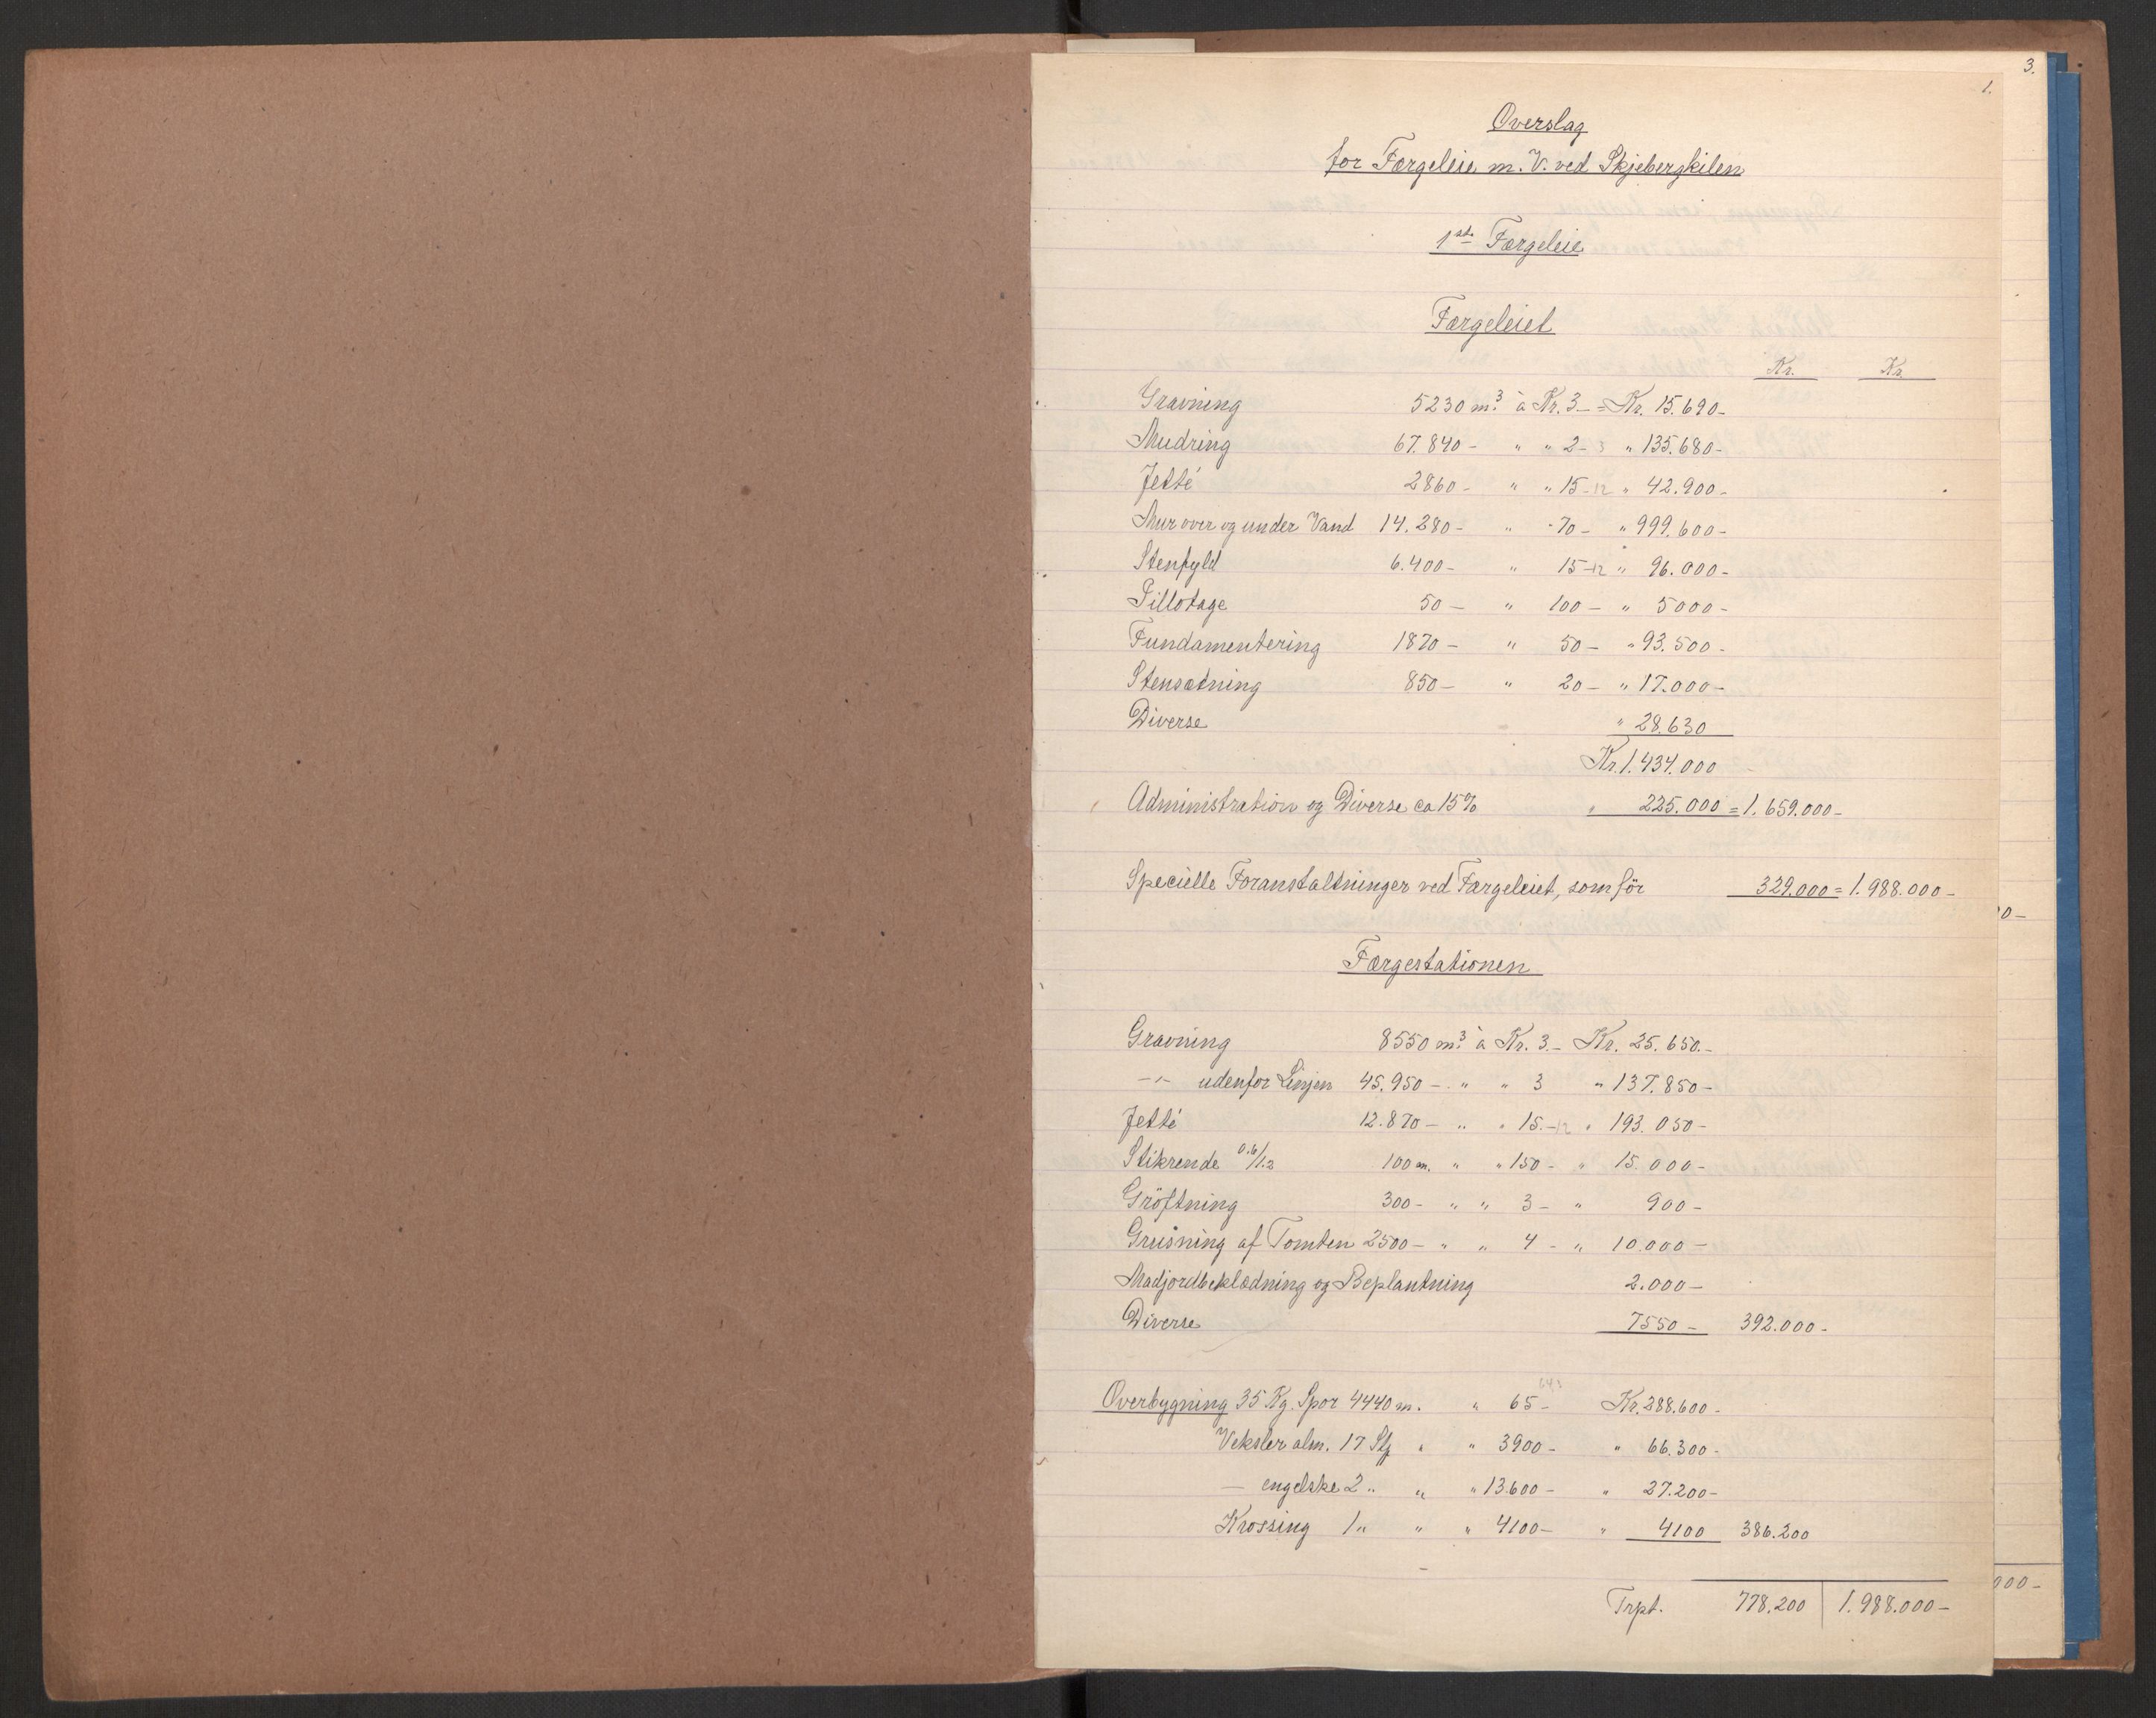 3.
1.
Overslag
for Færgeleie m. V. ved Skjebergkilen
1ste Færgeleie
Færgeleiet
Kr. Kr.
Gravning 5230 m³. à Kr. 3 – = Kr. 15.690 –
Mudring 67.840 – " " 2 – 3 " 135.680 –
Jetté 2860 – " " 15 – 12 " 42.900 –
Mur over og under Vand 14.280 – " " 70 – " 999.600 –
Stenfyld 6.400 – " 15 – 12 " 96.000 –
Pillotage 50 – " 100 – " 5000 –
Fundamentering 1870 – " 50 – " 93.500 –
Stensætning 850 – " 20 – " 17.000 –
Diverse " 28.630
Kr. 1.434.000
Administration og Diverse ca 15% " 225.000 = 1.659.000 –
Specielle Foranstaltninger ved Færgeleiet, som før 329.000 = 1.988.000 –
0 –
Færgestationen
Gravning 8550 m³. à Kr. 3. – Kr. 25.650. –
– " – udenfor Linjen 45.950 – " " 3 " 137.850 –
Jetté 12.870 – " " 15. – 12 " 193.050 –
Stikrende 0.6/1.2 100 m. " " 150 – " 15.000 –
Gröftning 300 – " " 3 – " 900 –
Grusning af Tomten 2500 – " " 4 – " 10.000 –
Madjordbeklædning og Beplantning 2.000 –
Diverse 7550 – 392.000 –
Overbygning 35 Kg. Spor 4440 m. " 65 – Kr. 288.600 –
Veksler alm. 17 Stk " " 3900 – " 66.300 –
— engelske 2 " " " 13.600 – " 27.200 –
Krossing 1 " " " 4100 – " 4100 386.200
000 –
Trpt. 778.200 1.988.000 –